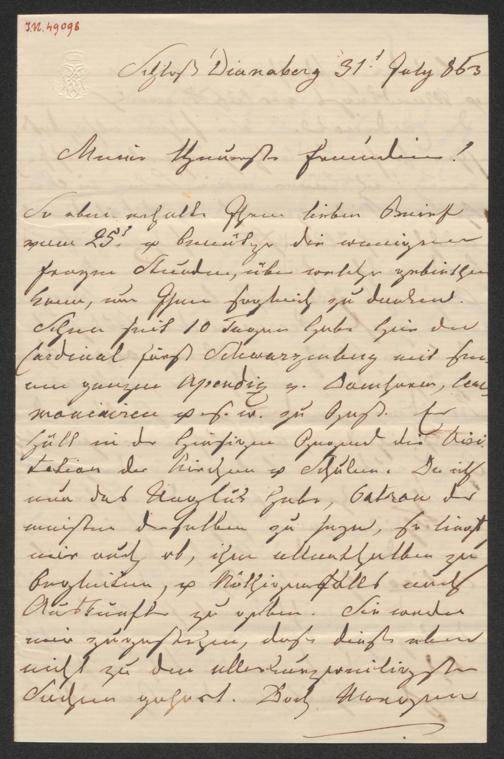 I.N. 49096
Schloß Dianaberg 31t July 863
Meine theuerste Freundin!
So eben erhalte Ihren lieben Brief
vom 25t & benütze die wenigen
freyen Stunden, über welche gebiethen
kann, um Ihnen sogleich zu danken.
Schon seit 10 Tagen habe hier den
Cardinal Fürst Schwarzenberg mit sei-
nem ganzen Apendix v. Domherrn, Cere-
moniären & s. w. zu Gast. Er
hält in der hiesigen Gegend die Visi-
tation der Kirchen & Schulen. Da ich
nun das Unglük habe, Patron der
meisten derselben zu seyn, so liegt
mir auch ob, ihn allenthalben zu
begleiten, & Nöthigenfalls auch
Auskünfte zu geben. Sie werden
mir zugestehen, daß dieß eben
nicht zu den allerkurzweiligsten
Sachen gehört. Doch Morgen